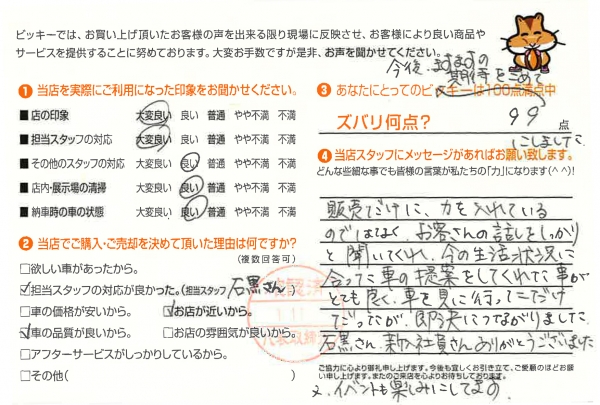 ビッキーでは、お買い上げ頂いたお客様の声を出来る限り現場に反映させ、お客様により良い商品や
サービスを提供することに努めております。大変お手数ですが是非、お声を聞かせてください。
❶ 当店を実際にご利用になった印象をお聞かせください。
■ 店の印象 大変良い 良い 普通 やや不満 不満
■ 担当スタッフの対応 大変良い 良い 普通 やや不満 不満
■ その他のスタッフの対応 大変良い 良い 普通 やや不満 不満
■ 店内・展示場の清掃 大変良い 良い 普通 やや不満 不満
■ 納車時の車の状態 大変良い 良い 普通 やや不満 不満
❷ 当店でご購入・ご売却を決めて頂いた理由は何ですか?
(複数回答可)
□欲しい車があったから。
☑担当スタッフの対応が良かった。(担当スタッフ 石黒さん)
□車の価格が安いから。 ☑お店が近いから。
☑車の品質が良いから。 □お店の雰囲気が良いから。
□アフターサービスがしっかりしているから。
□その他( )
今後、ますますの
期待をこめて
❸ あなたにとってのビッキーは100点満点中
ズバリ何点? 99 点
にしました
❹ 当店スタッフにメッセージがあればお願い致します。
どんな些細な事でも皆様の言葉が私たちの「力」になります(^ ^)!
販売だけに、力を入れている
のではなく、お客さんの話をしっかり
と聞いてくれ、今の生活状況に
合った車の提案をしてくれた事が
とても良く、車を見に行っただけ
だったが、即決につながりました。
石黒さん、新入社員さんありがとうございました
ご協力に心より御礼申し上げます。今後も宜しくお引き立て、ご愛顧のほどお願
い申し上げます。またのご来店を心よりお待ちしております。
又、イベントも楽しみにしてます。